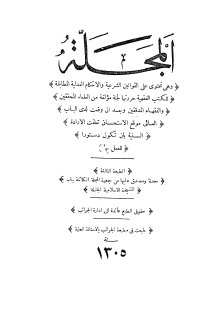 المجلة
﴿ وهي تحتوي على القوانين الشرعية والاحكام العدلية المطابقة ﴾
﴿ للكتب الفقهية حررتها لجنة مؤلفة من العلماء المحققين ﴾
﴿ والفقهاء المدققين وبعد ان وقعت لدى الباب ﴾
﴿ العالى موقع الاستحسان تعلقت الارادة ﴾
﴿ السنية بان تكون دستورا ﴾
﴿ للعمل بها ﴾
﴿ الطبعة الثالثة ﴾
﴿ معدلة ومصدق عليها من جمعية المجلة الكائنة بباب ﴾
﴿ المشيخة الاسلامية الجليلة ﴾
﴿ حقوق الطبع عائدة الى ادارة الجوائب ﴾
﴿ طبعت في مطبعة الجوائب بالاستانة العلية ﴾
سنة
١٣٠٥